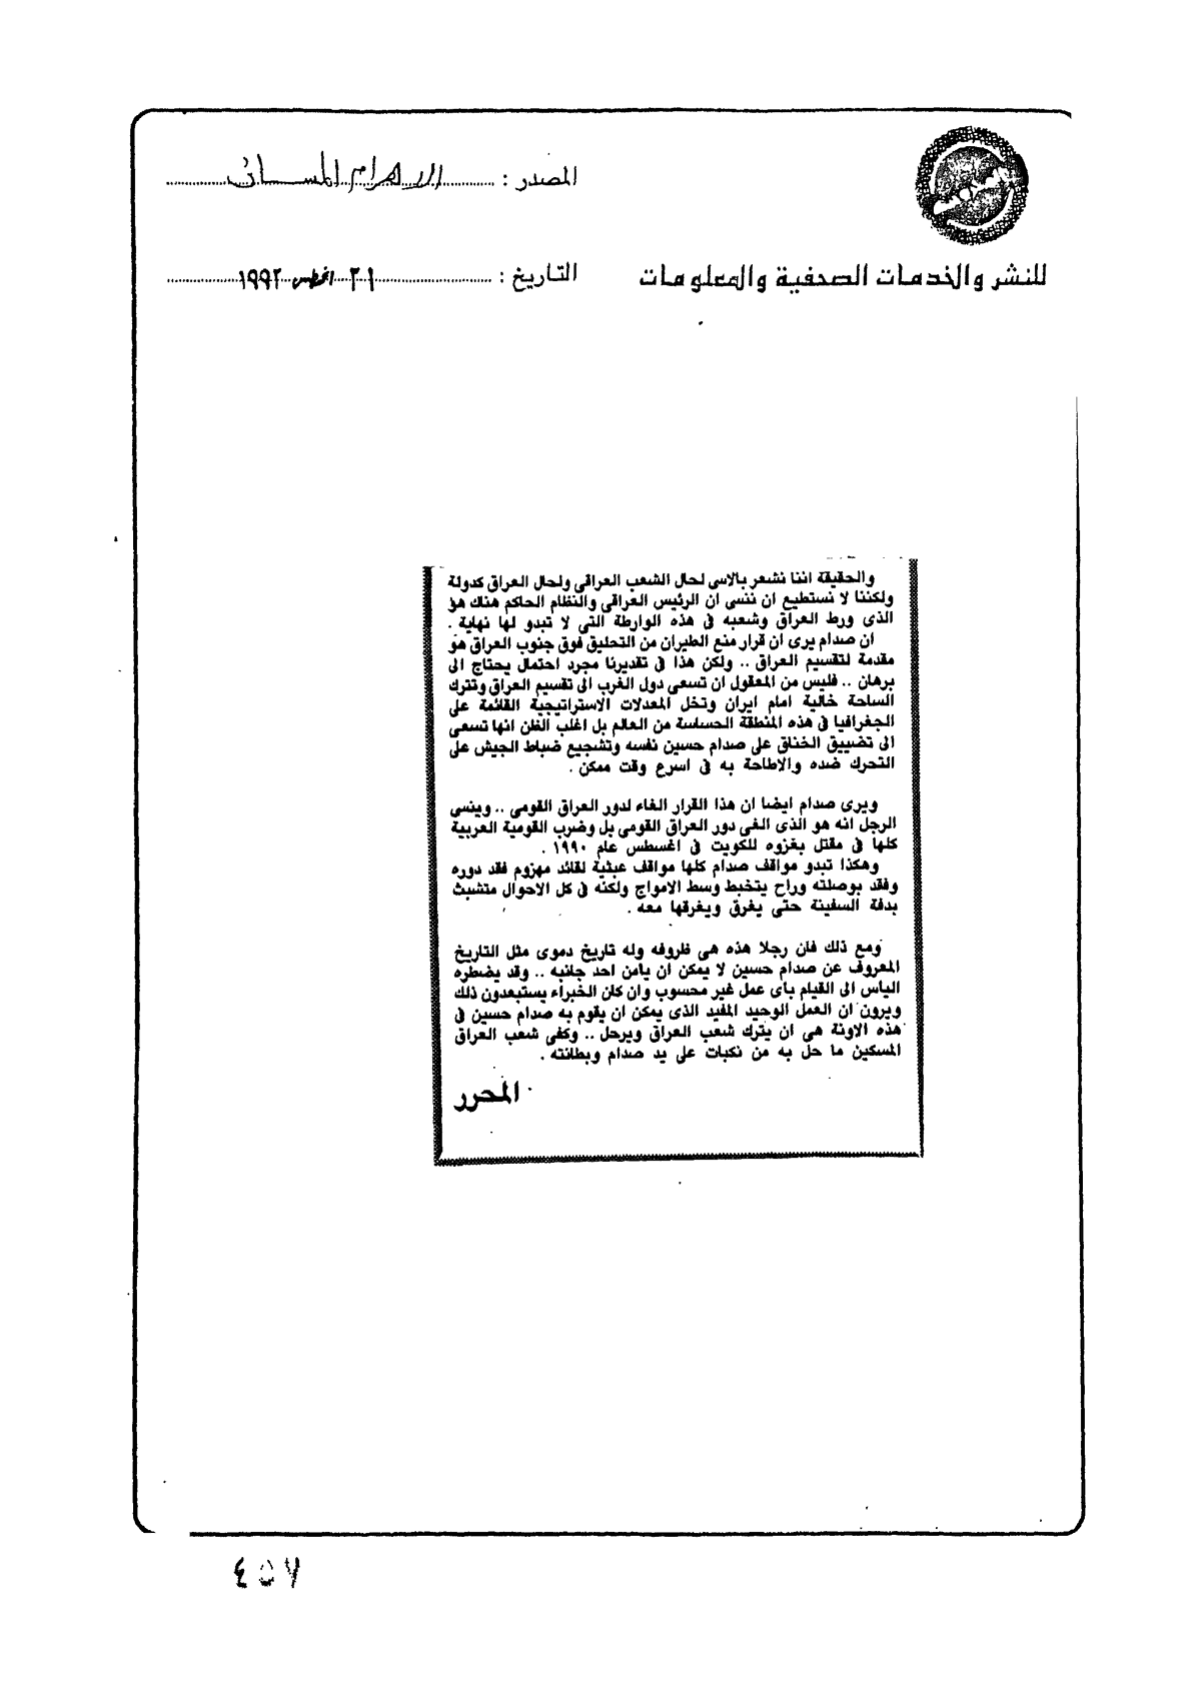 المصدر : الاهرام المسائى
للنشر والخدمات الصحفية والمعلومات
التاريخ : ٣١ اغسطس ١٩٩٢
والحقيقة اننا نشعر بالاسى لحال الشعب العراقى ولحال العراق كدولة
ولكننا لا نستطيع ان ننسى ان الرئيس العراقى والنظام الحاكم هناك هو
الذى ورط العراق وشعبه فى هذه الوارطة التى لا تبدو لها نهاية .
ان صدام يرى ان قرار منع الطيران من التحليق فوق جنوب العراق هو
مقدمة لتقسيم العراق .. ولكن هذا فى تقديرنا مجرد احتمال يحتاج الى
برهان .. فليس من المعقول ان تسعى دول الغرب الى تقسيم العراق وتترك
الساحة خالية امام ايران وتخل المعدلات الاستراتيجية القائمة على
الجغرافيا فى هذه المنطقة الحساسة من العالم بل اغلب الظن انها تسعى
الى تضييق الخناق على صدام حسين نفسه وتشجيع ضباط الجيش على
التحرك ضده والاطاحة به فى اسرع وقت ممكن .
ويرى صدام ايضا ان هذا القرار الغاء لدور العراق القومى .. وينسى
الرجل انه هو الذى الغى دور العراق القومى بل وضرب القومية العربية
كلها فى مقتل بغزوه للكويت فى اغسطس عام ١٩٩٠ .
وهكذا تبدو مواقف صدام كلها مواقف عبثية لقائد مهزوم فقد دوره
وفقد بوصلته وراح يتخبط وسط الامواج ولكنه فى كل الاحوال متشبث
بدفة السفينة حتى يغرق ويغرقها معه .
ومع ذلك فان رجلا هذه هى ظروفه وله تاريخ دموى مثل التاريخ
المعروف عن صدام حسين لا يمكن ان يامن احد جانبه .. وقد يضطره
الياس الى القيام باى عمل غير محسوب وان كان الخبراء يستبعدون ذلك
ويرون ان العمل الوحيد المفيد الذى يمكن ان يقوم به صدام حسين فى
هذه الاونة هى ان يترك شعب العراق ويرحل .. وكفى شعب العراق
المسكين ما حل به من نكبات على يد صدام وبطانته .
المحرر
٤٥٧